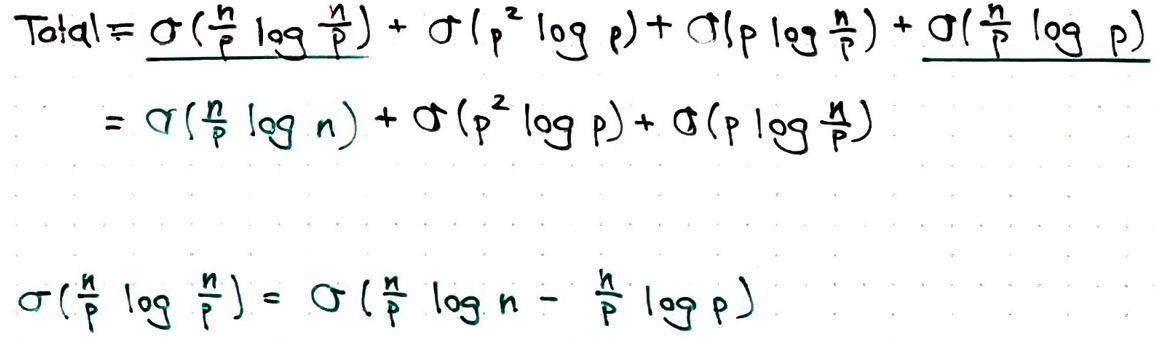 Total = σ(n/p log n/p) + σ(p² log p) + σ(p log n/p) + σ(n/p log p)
= σ(n/p log n) + σ(p² log p) + σ(p log n/p)
σ(n/p log n/p) = σ(n/p log n - n/p log p)